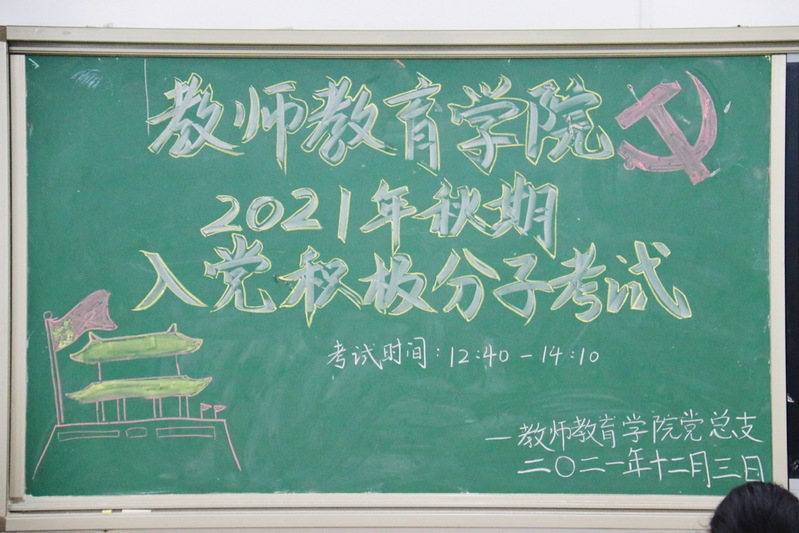 教师教育学院
2021年秋期
入党积极分子考试
考试时间：12:40-14:10
—教师教育学院党总支
二〇二一年十二月三日